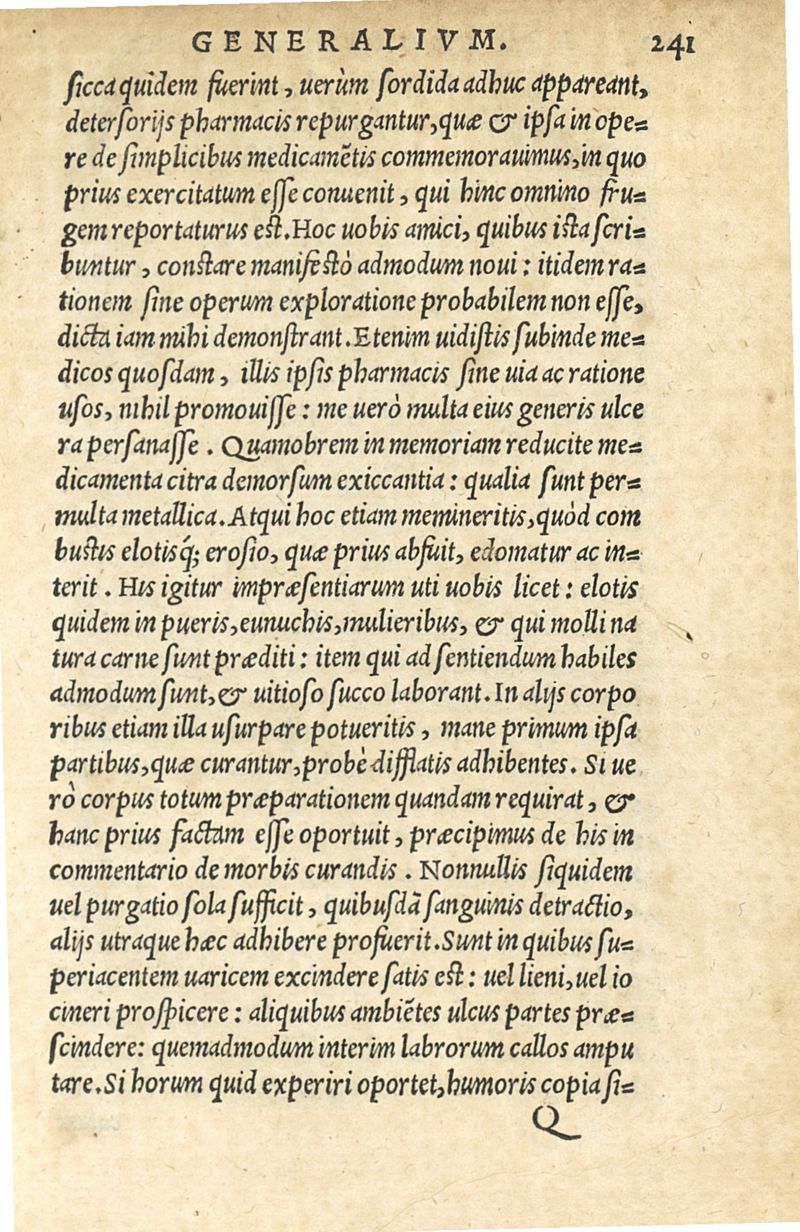 GENERALIVM. 241
sicca quidem fuerint, uerùm sordida adhuc appareant,
detersorijs pharmacis repurgantur, quæ & ipsa in ope=
re de simplicibus medicamētis commemorauimus, in quo
prius exercitatum esse conuenit, qui hinc omnino fru=
gem reportaturus est. Hoc uobis amici, quibus ista scri=
buntur, constare manifestò admodum noui: itidem ra=
tionem sine operum exploratione probabilem non esse,
dicta iam mihi demonstrant. Etenim uidistis subinde me=
dicos quosdam, illis ipsis pharmacis sine uia ac ratione
usos, nihil promouisse: me uerò multa eius generis ulce
ra persanasse. Quamobrem in memoriam reducite me=
dicamenta citra demorsum exiccantia: qualia sunt per=
multa metallica. Atqui hoc etiam memineritis, quòd com
bustis elotisq́; erosio, quæ prius abfuit, edomatur ac in=
terit. His igitur impræsentiarum uti uobis licet: elotis
quidem in pueris, eunuchis, mulieribus, & qui molli na
tura carne sunt præditi: item qui ad sentiendum habiles
admodum sunt, & uitioso succo laborant. In alijs corpo
ribus etiam illa usurpare potueritis, mane primum ipsa
partibus, quæ curantur, probè difflatis adhibentes. Si ue
rò corpus totum præparationem quandam requirat, &
hanc prius factam esse oportuit, præcipimus de his in
commentario de morbis curandis. Nonnullis siquidem
uel purgatio sola sufficit, quibusdā sanguinis detractio,
alijs utraque hæc adhibere profuerit. Sunt in quibus su=
periacentem uaricem excindere satis est: uel lieni, uel io
cineri prospicere: aliquibus ambiētes ulcus partes præ=
scindere: quemadmodum interim labrorum callos ampu
tare. Si horum quid experiri oportet, humoris copia si=
Q